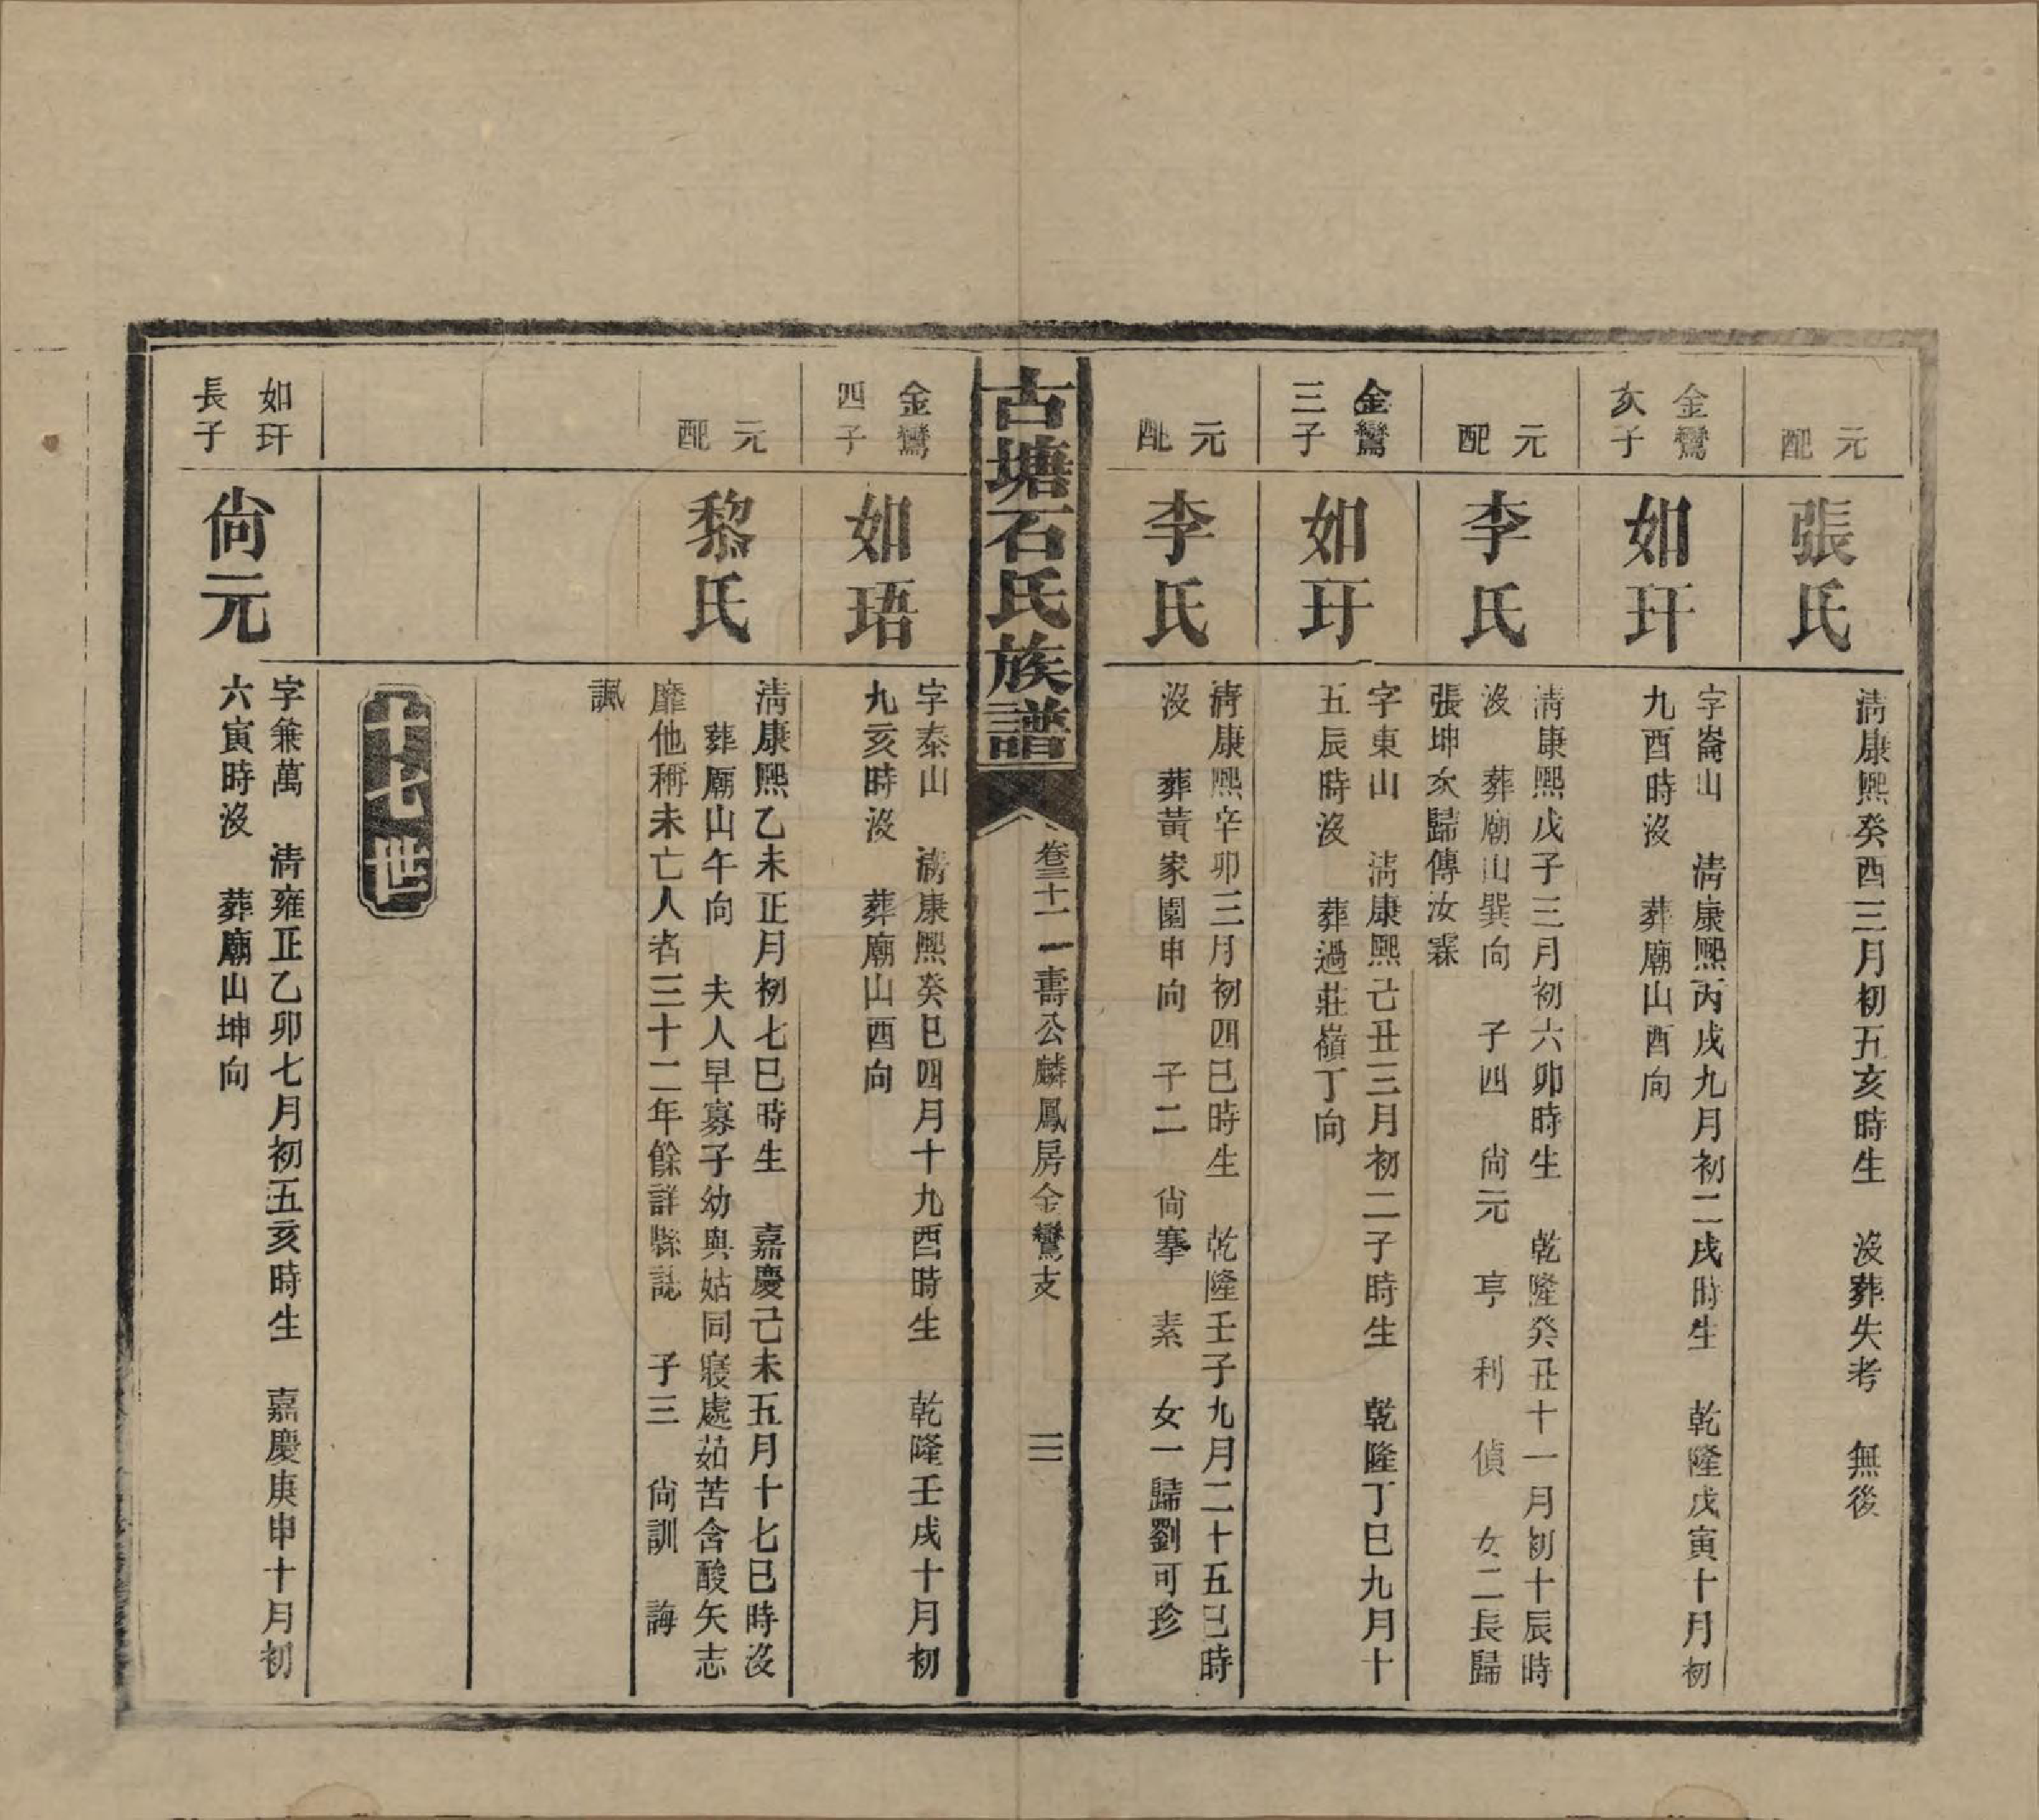 元配
張氏
淸康熙癸酉三月初五亥時生　沒葬失考　無後
金鸞
次子
如玕
字崙山　淸康熙丙戌九月初二戌時生　乾隆戊寅十月初
九酉時沒　葬廟山酉向
元配
李氏
淸康熙戊子三月初六卯時生　乾隆癸丑十一月初十辰時
沒　葬廟山巽向　子四　尙元　亨　利　偵　女二長歸
張坤次歸傳汝霖
金鸞
三子
如玗
字東山　淸康熙己丑三月初二子時生　乾隆丁巳九月十
五辰時沒　葬過莊嶺丁向
元配
李氏
淸康熙辛卯三月初四巳時生　乾隆壬子九月二十五巳時
沒　葬黃家園申向　子二　尙搴　素　女一歸劉可珍
古塘石氏族譜
卷三十一　壽公麟鳳房金鸞支　三
金鸞
四子
如珸
字泰山　淸康熙癸巳四月十九酉時生　乾隆壬戌十月初
九亥時沒　葬廟山酉向
元配
黎氏
淸康熙乙未正月初七巳時生　嘉慶己未五月十七巳時沒
葬廟山午向　夫人早寡子幼與姑同寢處茹苦含酸矢志
靡他稱未亡人者三十二年餘詳縣誌　子三　尙訓　誨
諷
十七世
如玕
長子
尙元
字兼萬　淸雍正乙卯七月初五亥時生　嘉慶庚申十月初
六寅時沒　葬廟山坤向